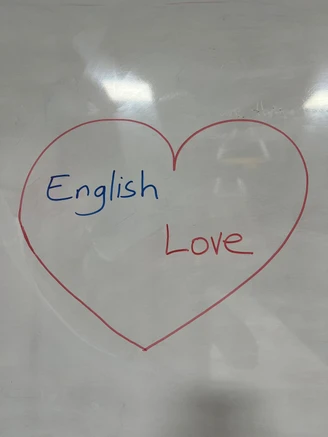 English
Love